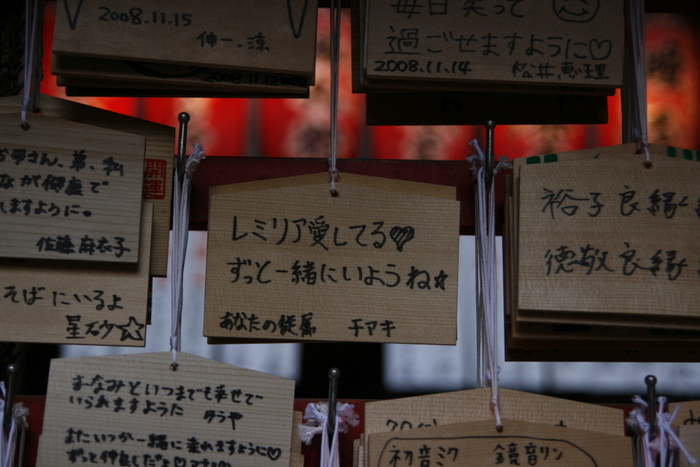 2008.11.15
伸一・涼
2008.11.12
毎日笑って
過ごせますように♡
2008.11.14 松井恵理
お母さん、弟、私
が健康で
ますように。
佐藤麻衣子
開運
そばにいるよ
星砂☆
レミリア愛してる♡
ずっと一緒にいようね☆
あなたの従属 チアキ
裕子良縁
徳敬良縁
いつまでも幸せで
いられますように タラヤ
またいつか一緒に来れますように♡
初音ミク 鏡音リン